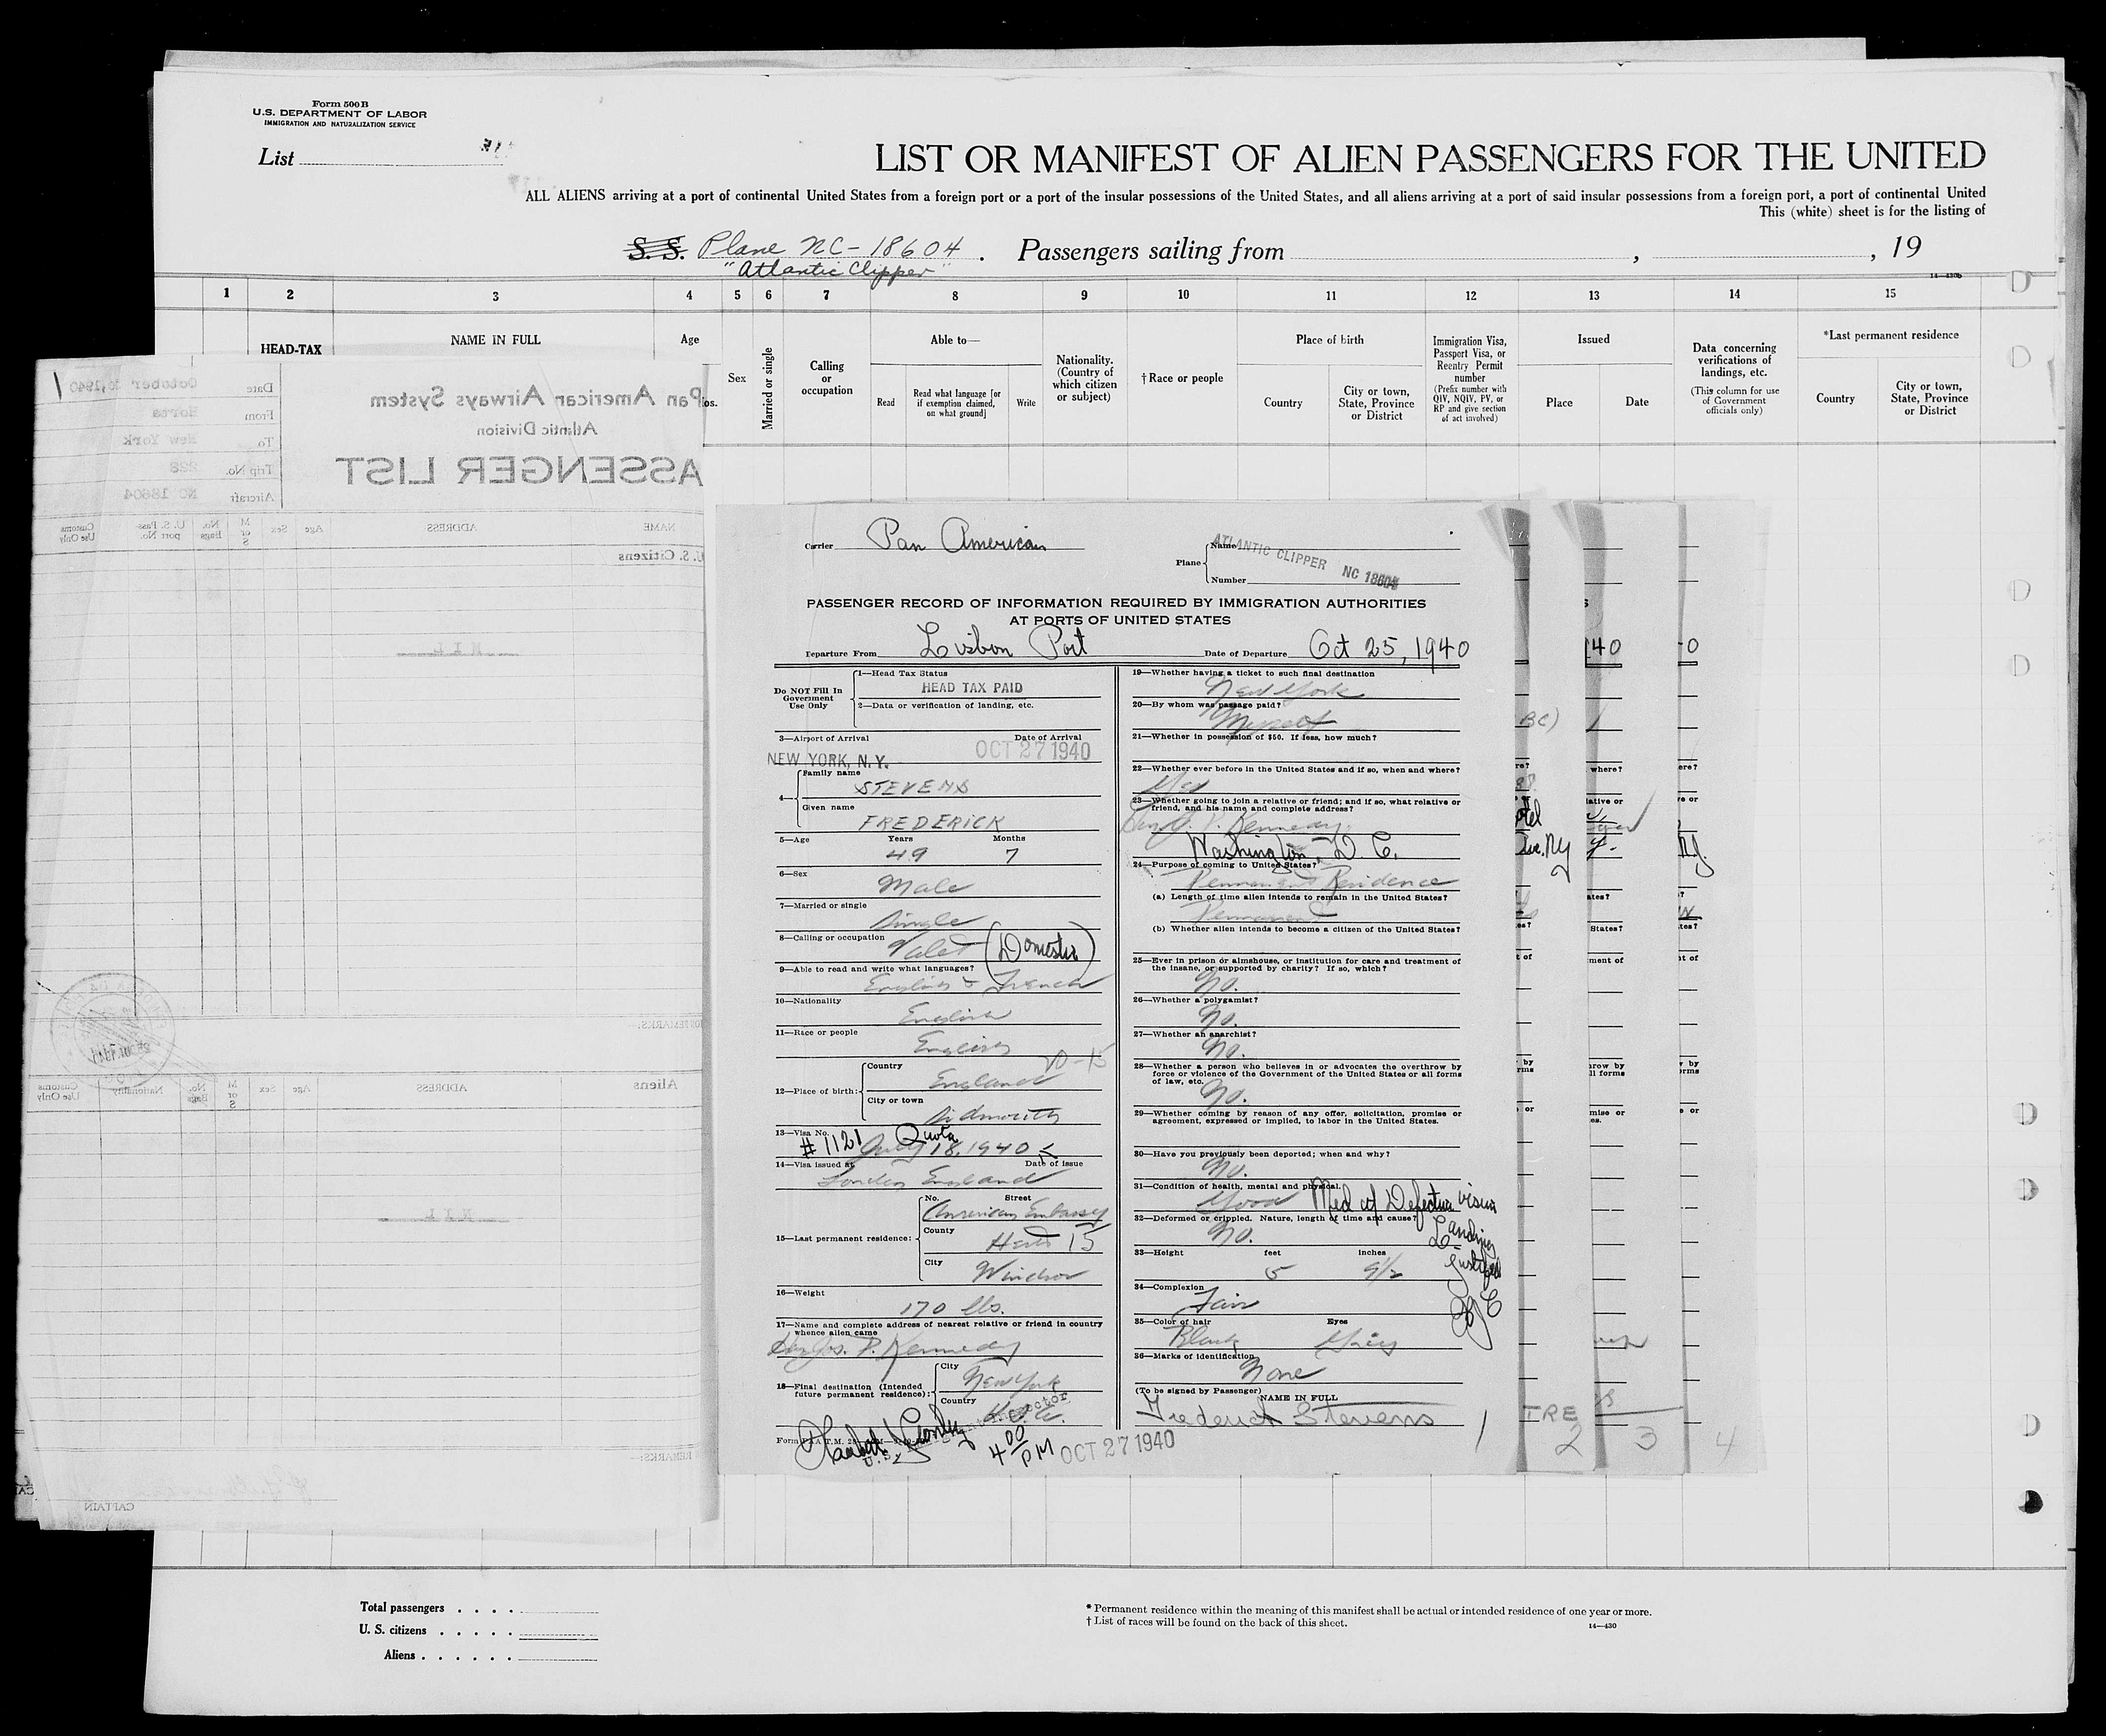 Form 500B
U.S. DEPARTMENT OF LABOR
IMMIGRATION AND NATURALIZATION SERVICE
List
LIST OR MANIFEST OF ALIEN PASSENGERS FOR THE UNITED
ALL ALIENS arriving at a port of continental United States from a foreign port or a port of the insular possessions of the United States, and all aliens arriving at a port of said insular possessions from a foreign port, a port of continental United
This (white) sheet is for the listing of
S. S. Plane NC-18604 . Passengers sailing from , , 19
"Atlantic Clipper"
14—430b
1 2 3 4 5 6 7 8 9 10 11 12 13 14 15
HEAD-TAX
NAME IN FULL
Age
Sex
Married or single
Calling or occupation
Able to—
Read
Read what language [or if exemption claimed, on what ground]
Write
Nationality. (Country of which citizen or subject)
†Race or people
Place of birth
Country
City or town, State, Province or District
Immigration Visa, Passport Visa, or Reentry Permit number
(Prefix number with QIV, NQIV, PV, or RP and give section of act involved)
Issued
Place
Date
Data concerning verifications of landings, etc.
(This column for use of Government officials only)
*Last permanent residence
Country
City or town, State, Province or District
Pan American Airways System
Atlantic Division
ASSENGER LIST
Date October 1940
From Horta
To New York
Trip No. 238
Aircraft NC 18604
NAME ADDRESS Age Sex M or S No. Bags U. S. Pass-port No. Customs Use Only
U. S. Citizens
N I L
REMARKS:—
Aliens ADDRESS Age Sex M or S No. Bags Nationality Customs Use Only
N I L
REMARKS:—
CAPTAIN
Carrier Pan American
Plane
Name ATLANTIC CLIPPER
Number NC 18604
PASSENGER RECORD OF INFORMATION REQUIRED BY IMMIGRATION AUTHORITIES
AT PORTS OF UNITED STATES
Departure From Lisbon Port Date of Departure Oct 25, 1940
Do NOT Fill In Government Use Only
1—Head Tax Status
HEAD TAX PAID
2—Data or verification of landing, etc.
3—Airport of Arrival Date of Arrival
NEW YORK, N.Y. OCT 27 1940
4—
Family name
STEVENS
Given name
FREDERICK
5—Age Years Months
49 7
6—Sex
Male
7—Married or single
Single
8—Calling or occupation
Valet (Domestic)
9—Able to read and write what languages?
English & French
10—Nationality
English
11—Race or people
English
12—Place of birth:
Country
England
City or town
Sidmouth
13—Visa No.
#1121 Quota July 18, 1940
14—Visa issued at Date of issue
London England
15—Last permanent residence:
No. Street
American Embassy
County
Herts 15
City
Windsor
16—Weight
170 lbs.
17—Name and complete address of nearest relative or friend in country whence alien came
Hon Jos. P. Kennedy
18—Final destination (Intended future permanent residence):
City
New York
Country
4 00 PM OCT 27 1940
19—Whether having a ticket to such final destination
New York
20—By whom was passage paid?
Myself
21—Whether in possession of $50. If less, how much?
22—Whether ever before in the United States and if so, when and where?
Yes
23—Whether going to join a relative or friend; and if so, what relative or friend, and his name and complete address?
Hon J. P. Kennedy
Washington, D. C.
24—Purpose of coming to United States?
Permanent Residence
(a) Length of time alien intends to remain in the United States?
Permanent
(b) Whether alien intends to become a citizen of the United States?
25—Ever in prison or almshouse, or institution for care and treatment of the insane, or supported by charity? If so, which?
No.
26—Whether a polygamist?
No.
27—Whether an anarchist?
No.
28—Whether a person who believes in or advocates the overthrow by force or violence of the Government of the United States or all forms of law, etc.
No.
29—Whether coming by reason of any offer, solicitation, promise or agreement, expressed or implied, to labor in the United States.
30—Have you previously been deported; when and why?
No.
31—Condition of health, mental and physical.
Good Med cf Defective vision
32—Deformed or crippled. Nature, length of time and cause?
No. Landing justified
33—Height feet inches
5 9 1/2
34—Complexion
Fair
35—Color of hair Eyes
Black Grey
36—Marks of identification
None
(To be signed by Passenger)
NAME IN FULL
Frederick Stevens
1 2 3 4
Total passengers
U. S. citizens
Aliens
* Permanent residence within the meaning of this manifest shall be actual or intended residence of one year or more.
† List of races will be found on the back of this sheet.
14—430